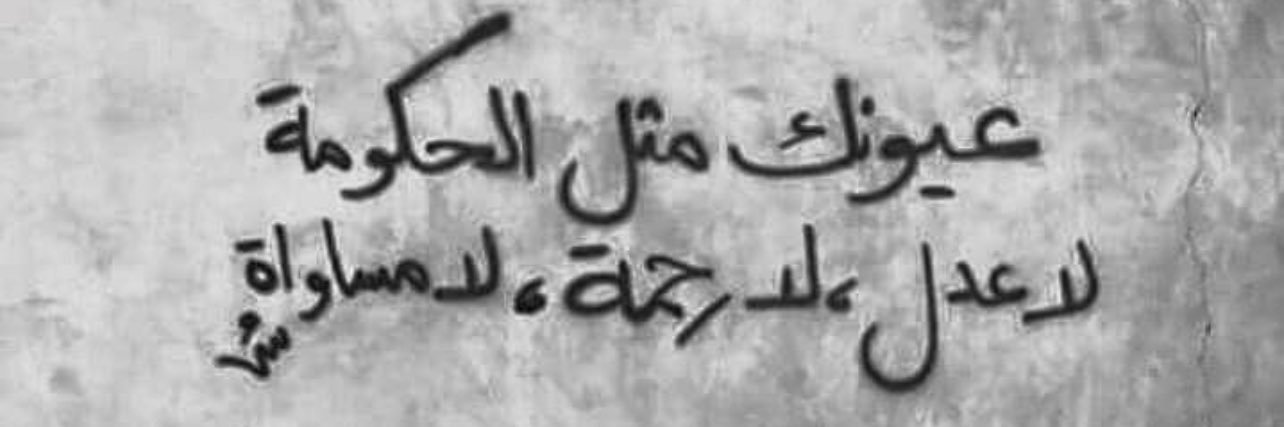 عيونك مثل الحكومة
لا عدل ، لا رحمة ، لا مساواة